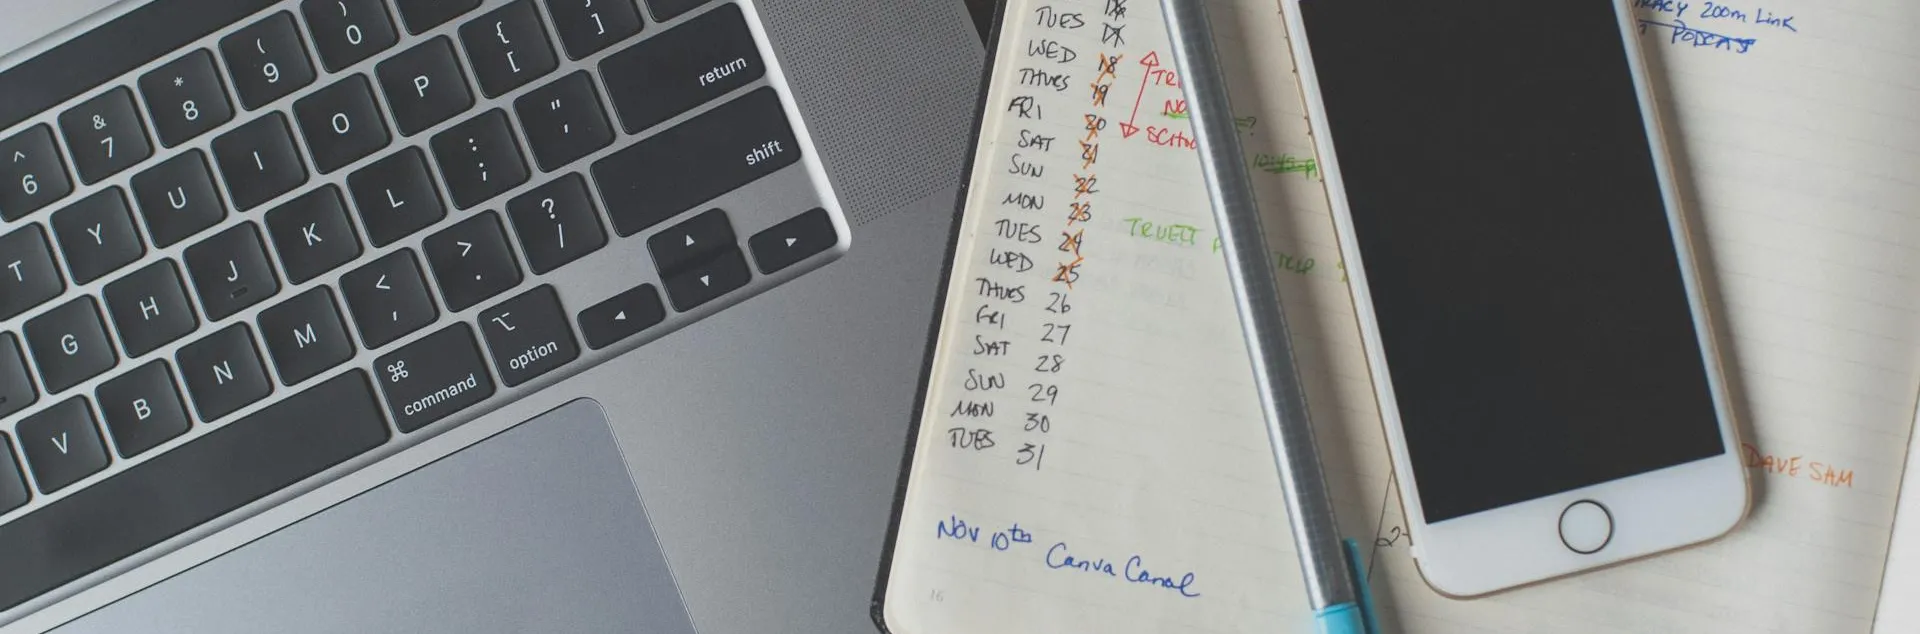 ) 0
{ [
} ]
( 9
* 8
& 7
^ 6
return
P
O
I
U
Y
T
" '
: ;
L
K
J
H
G
shift
? /
> .
< ,
M
N
B
V
⌘ command
⌥ option
TUES 17
WED 18
THURS 19
FRI 20
SAT 21
SUN 22
MON 23
TUES 24
WED 25
THURS 26
FRI 27
SAT 28
SUN 29
MON 30
TUES 31
TRUETT
Nov 10th Canva Cancel
16
200m Link
PODCAST
DAVE SAM